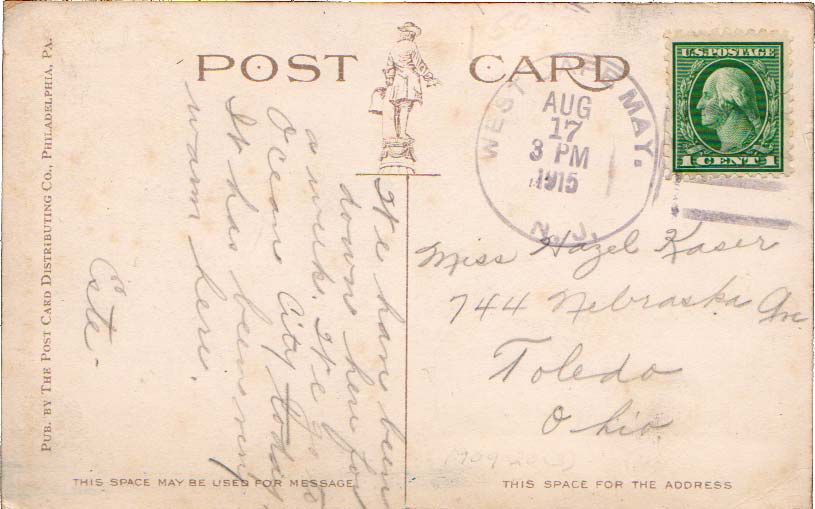 POST CARD
U.S. POSTAGE
1 CENT 1
WEST CAPE MAY.
AUG
17
3 PM
1915
N.J.
PUB. BY THE POST CARD DISTRIBUTING CO., PHILADELPHIA, PA.
We have been
down here for
a week. We go to
Ocean City today.
It has been very
warm here.
Este-
Miss Hazel Kaser
744 Nebraska Ave.
Toledo
Ohio.
THIS SPACE MAY BE USED FOR MESSAGE
THIS SPACE FOR THE ADDRESS